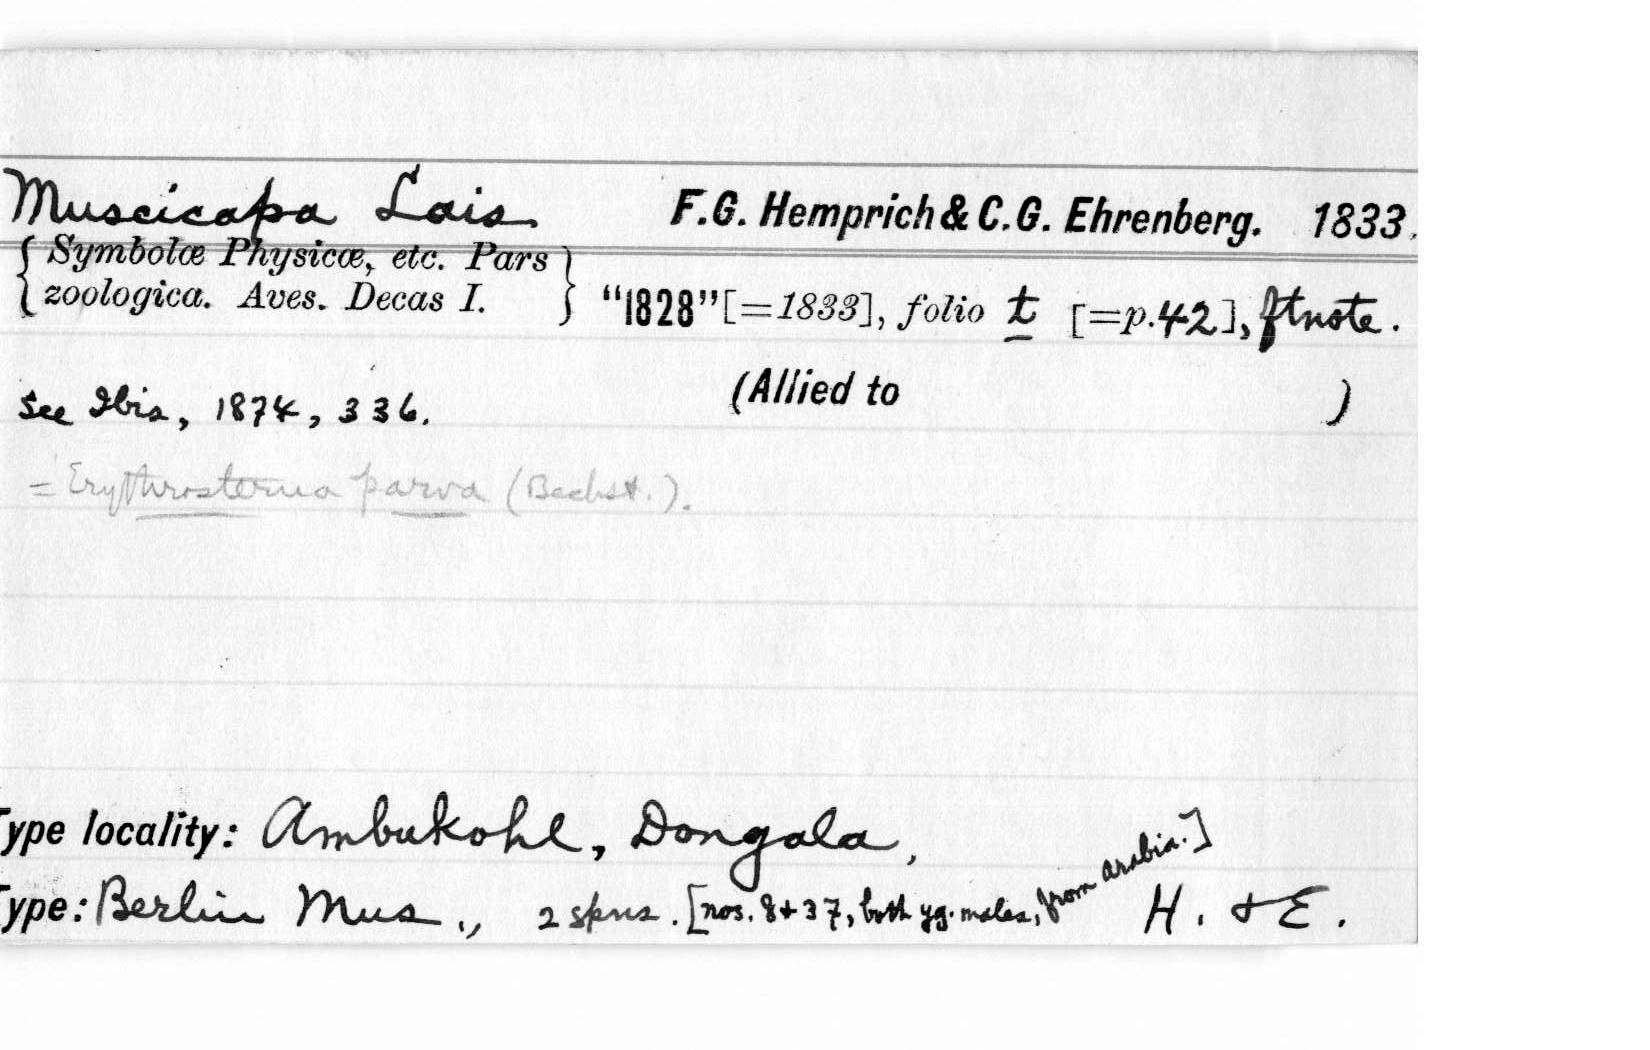 Muscicapa Lais. F.G. Hemprich & C.G. Ehrenberg. 1833.
{Symbolæ Physicæ, etc. Pars
zoologica. Aves. Decas I.} "1828" [=1833], folio t [=p.42], ftnote.
See Ibis, 1874, 336. (Allied to )
= Erythrosterna parva (Bechst.).
Type locality: Ambukohl, Dongala,
Type: Berlin Mus., 2 spns. [nos. 8+37, both yg. males, from Arabia.] H. & E.